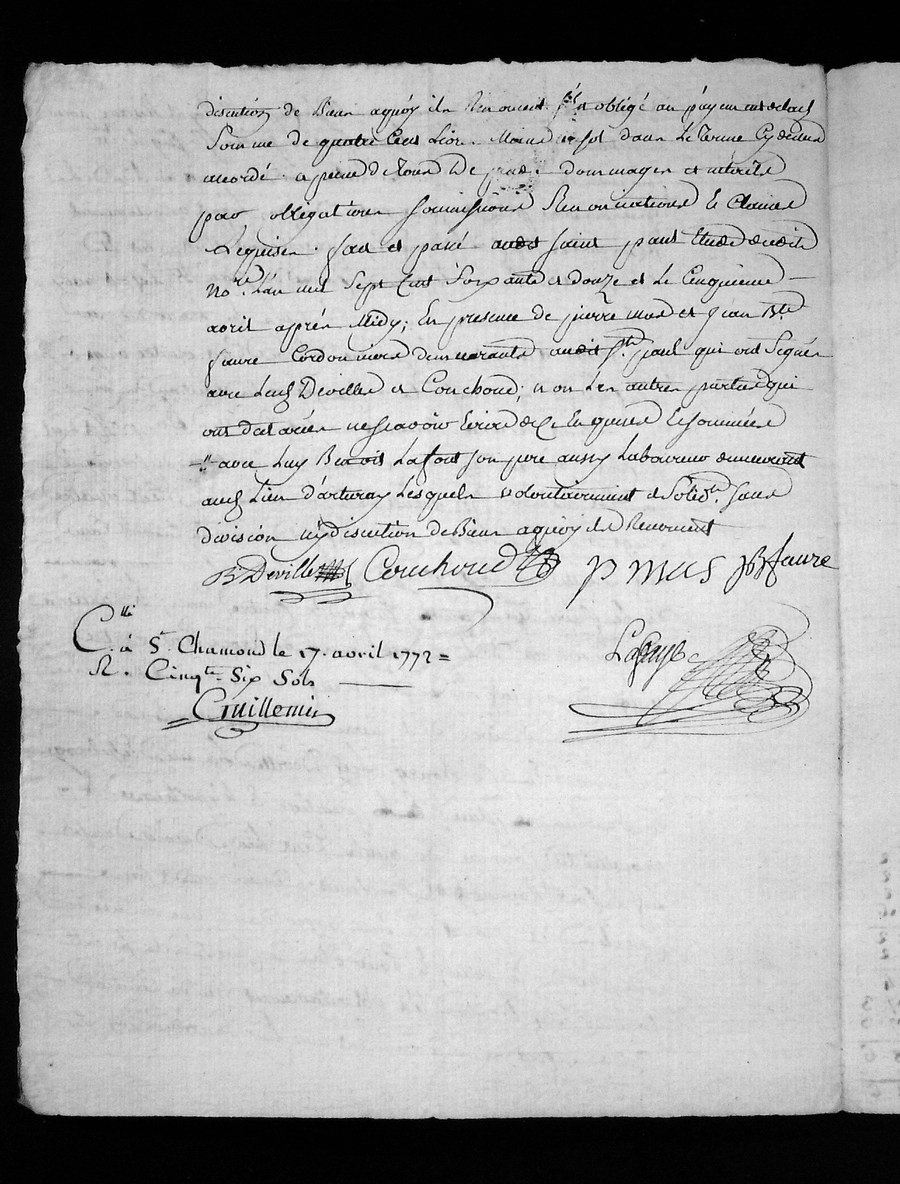 discution de Biens aquoy ils Renoncent et obligé au payement de lad
Somme de quatre Cens Livres Moins sol dans Le Terme Cydessus
accordé a peine de Tous dépens dommages et interets
par obligations Soumissions Renonciations & Clauses
Requises. fait et passé audit Saint paul Etude dudit
No.re L'an mil Sept Cens Soixante et douze et Le Cinquieme
avril aprés Midy; En presence de pierre mas et Jean B.te
faure Cordonniers demeurants audit S.t paul qui ont Signés
avec Led Deville et Couchoud; non Les autres parties qui
ont déclarées ne Scavoir Ecrire de Ce Enquises & Sommées
-"- avec Luy Benoit Lafont Son pere aussy Laboureur demeurant
aud Lieu d'arturay Lesquels volontairement et Solid.nt Sans
division ny discution de Biens aquoy ils Renoncent
B Deville Couchoud p mas JB faure
C.lle à S.t Chamond le 17. avril 1772 =
R. Cinq.te Six Sols
Lafaye
Guillemin